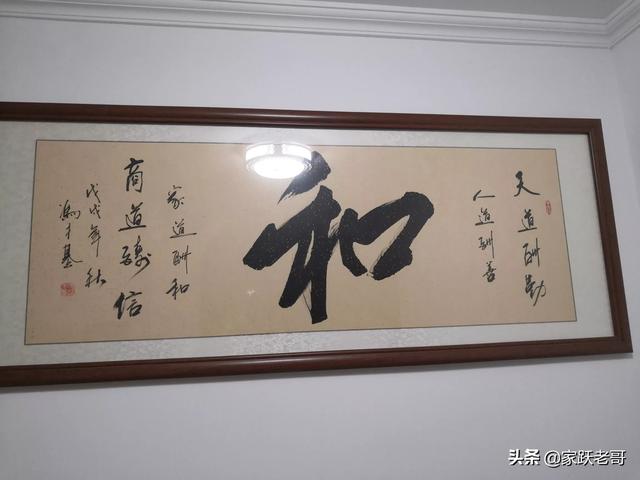 天道酬勤
人道酬善
和
家道酬和
商道酬信
戊戌年秋
馮才基
头条 @家跃老哥